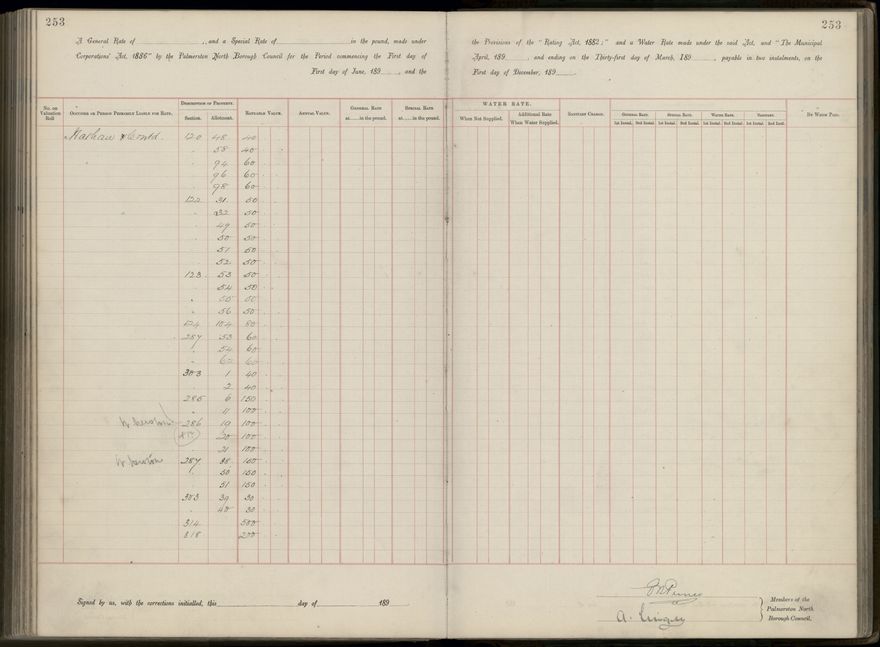 253
A General Rate of , and a Special Rate of in the pound, made under
Corporations' Act, 1886" by the Palmerston North Borough Council for the Period commencing the First day of
First day of June, 189 , and the
No. on Valuation Roll
Occupier or Person Primarily Liable for Rate.
Description of Property.
Section. Allotment.
Rateable Value.
Annual Value.
General Rate at in the pound.
Special Rate at in the pound.
120 48 40
58 40
94 60
96 60
98 60
122 31 50
32 50
49 50
50 50
51 50
52 50
123 53 50
54 50
55 50
56 50
124 104 80
287 53 60
54 60
62 60
303 1 40
2 40
285 6 150
11 100
286 19 100
20 100
21 100
287 38 100
50 150
51 150
303 39 30
40 30
314 500
318 200
Signed by us, with the corrections initialled, this day of 189
253
the Provisions of the "Rating Act, 1882;" and a Water Rate made under the said Act, and "The Municipal
April, 189 , and ending on the Thirty-first day of March, 189 , payable in two instalments, on the
First day of December, 189 .
WATER RATE.
When Not Supplied.
Additional Rate When Water Supplied.
Sanitary Charge.
General Rate. Special Rate. Water Rate. Sanitary.
1st Instal. 2nd Instal. 1st Instal. 2nd Instal. 1st Instal. 2nd Instal. 1st Instal. 2nd Instl.
By Whom Paid.
Members of the
Palmerston North
Borough Council.